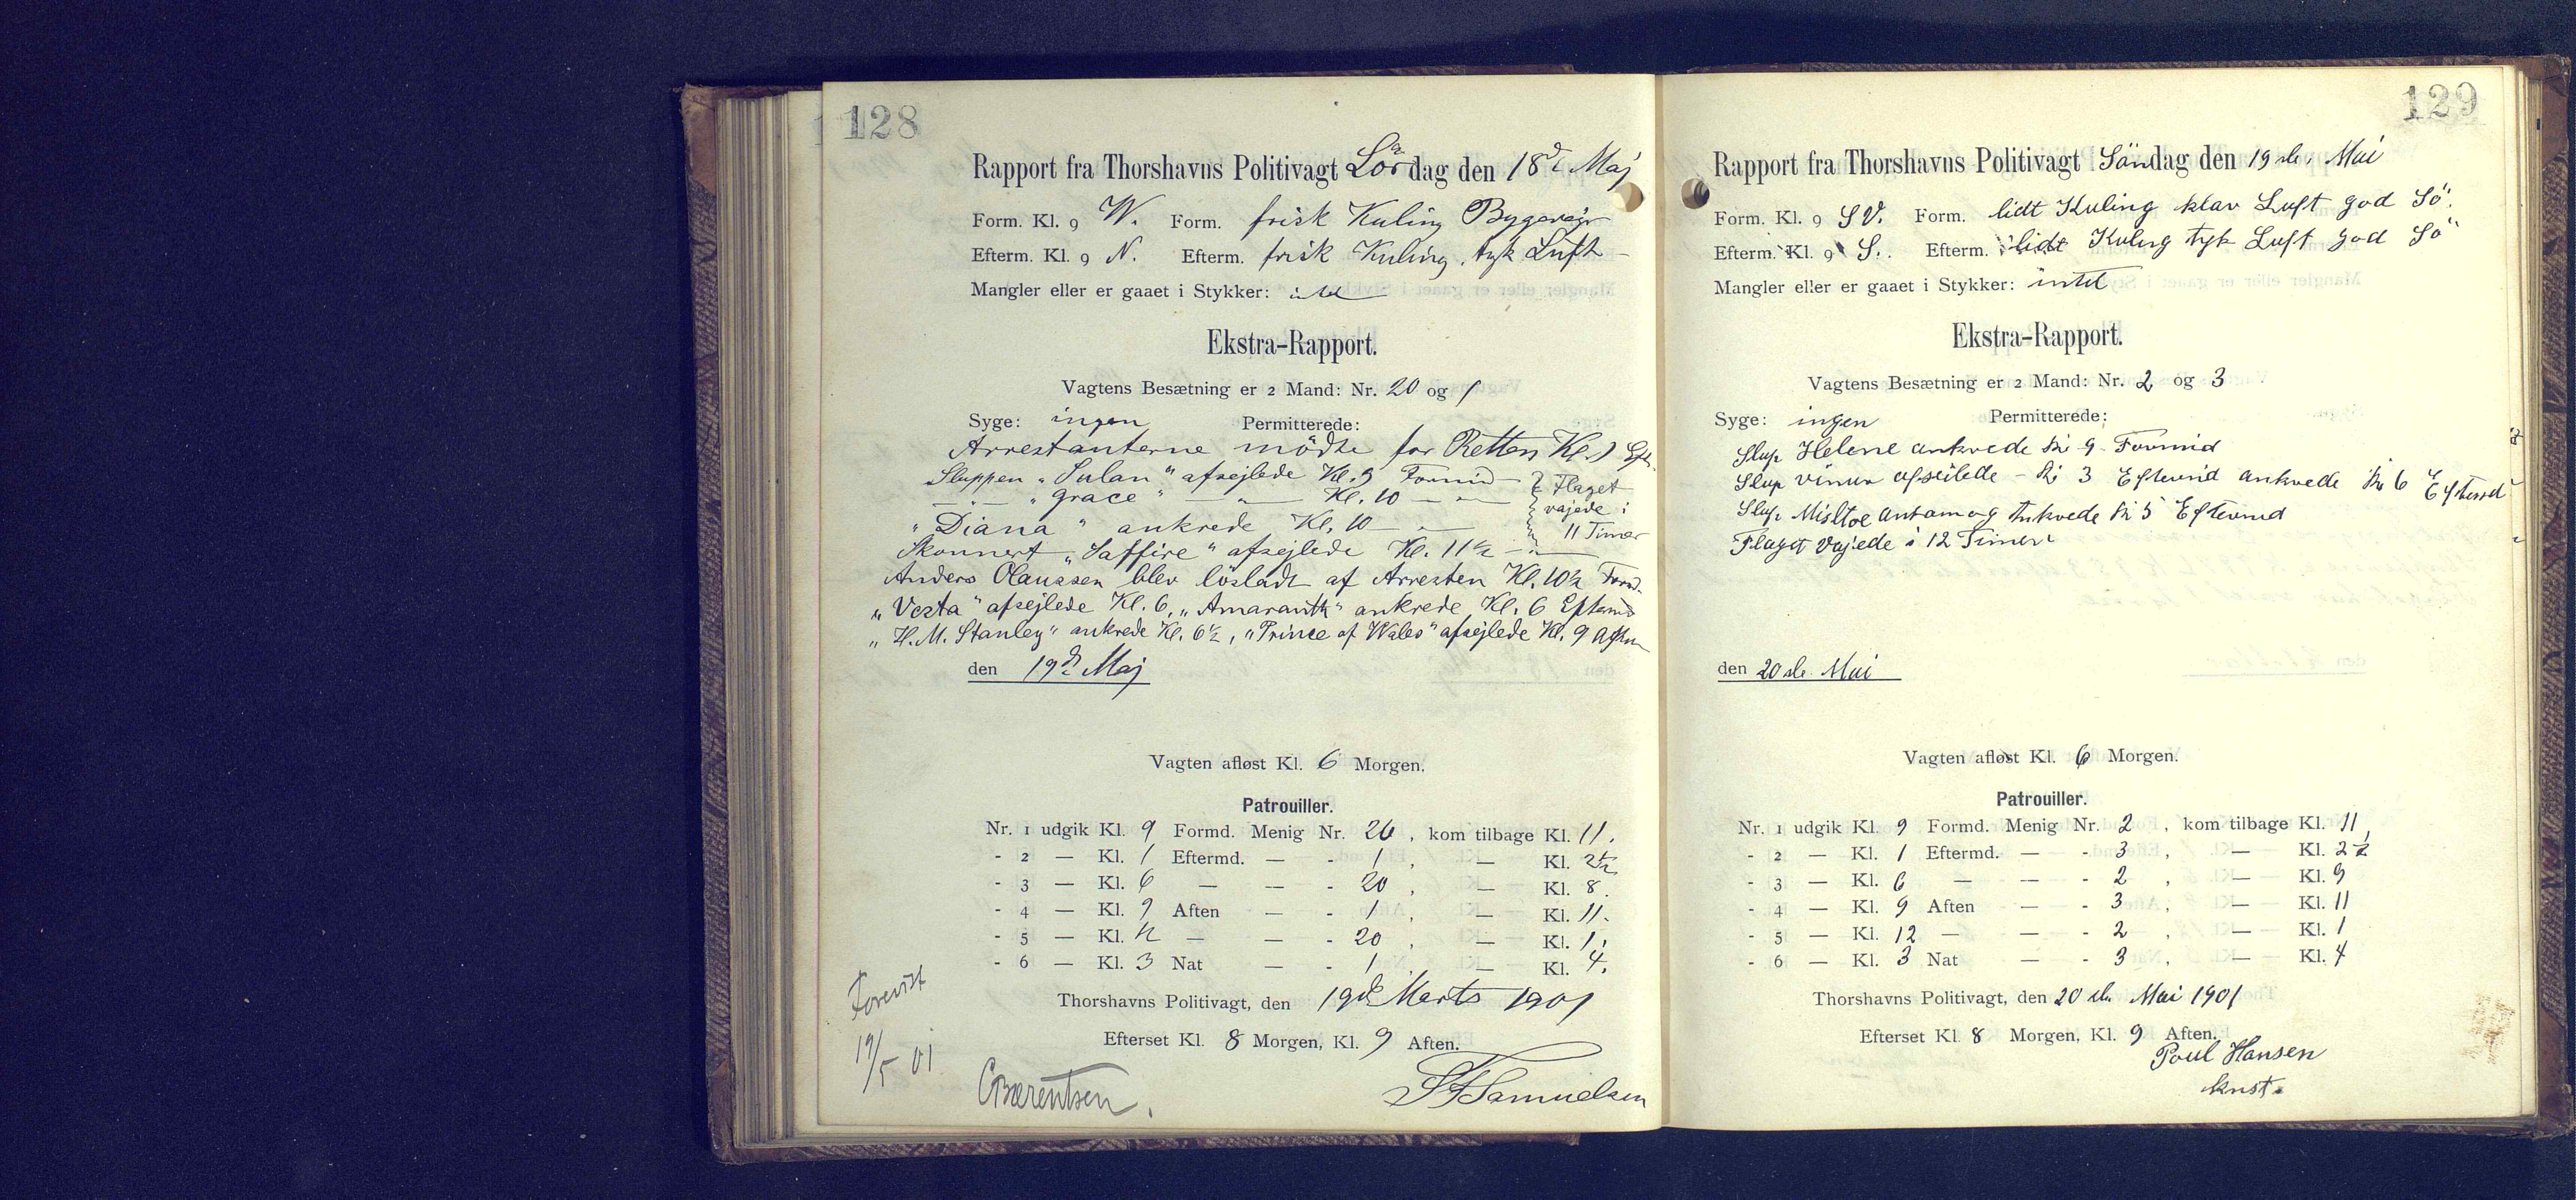 128
Rapport fra Thorshavns Politivagt Lördag den 18d. Maj
Form. Kl. 9 W. Form. frisk Kuling Bygevejr
Efterm. Kl. 9 N. Efterm. frisk Kuling, tyk Luft
Mangler eller er gaaet i Stykker: intet
Ekstra-Rapport.
Vagtens Besætning er 2 Mand: Nr. 20 og 1
Syge: ingen Permitterede:
Arrestanterne mödte for Retten Kl.
Sluppen "Sulan" afsejlede Kl. 9 Formid
— " — "Grace" — " — Kl. 10 — " —
"Diana" ankrede Kl. 10 — " —
Flaget vajede i 11 Timer
Skonnert "Saffire" afsejlede Kl. 11½ — " —
Anders Olaussen blev lösladt af Arresten Kl. 10½ Formd.
"Vesta" afsejlede Kl. 6, "Amaranth" ankrede Kl. 6 Eftermd
"H. M. Stanley" ankrede Kl. 6½, "Prince of Wales" afsejlede Kl. 9 Aften
den 19d. Maj
Vagten afløst Kl. 6 Morgen.
Patrouiller.
Nr. 1 udgik Kl. 9 Formd. Menig Nr. 20, kom tilbage Kl. 11.
- 2 — Kl. 1 Eftermd. — - 1, — Kl. 2½
- 3 — Kl. 6 — — - 20, — Kl. 8.
- 4 — Kl. 9 Aften — - 1, — Kl. 11.
- 5 — Kl. 12 — — - 20, — Kl. 1.
- 6 — Kl. 3 Nat — - 1, — Kl. 4.
Thorshavns Politivagt, den 19d. Marts 1901
Efterset Kl. 8 Morgen, Kl. 9 Aften.
Forevist
19/5 01
CBærentsen.
Samuelsen
129
Rapport fra Thorshavns Politivagt Söndag den 19 de. Mai
Form. Kl. 9 SV. Form. lidt Kuling klar Luft god Sö.
Efterm. Kl. 9 S. Efterm. lidt Kuling tyk Luft god Sö
Mangler eller er gaaet i Stykker: intet
Ekstra-Rapport.
Vagtens Besætning er 2 Mand: Nr. 2 og 3
Syge: ingen Permitterede:
Slup Helene ankrede Kl 9 Formid
Slup afseilede - Kl 3 Eftermd ankrede Kl 6 Eftermd
Slup Misltoe ankrede Kl 5 Eftermd
Flaget Vajede i 12 Timer
den 20 de. Mai
Vagten afløst Kl. 6 Morgen.
Patrouiller.
Nr. 1 udgik Kl. 9 Formd. Menig Nr. 2, kom tilbage Kl. 11,
- 2 — Kl. 1 Eftermd. — - 3, — Kl. 2½
- 3 — Kl. 6 — — - 2, — Kl. 9
- 4 — Kl. 9 Aften — - 3, — Kl. 11
- 5 — Kl. 12 — — - 2, — Kl. 1
- 6 — Kl. 3 Nat — - 3, — Kl. 4
Thorshavns Politivagt, den 20 de. Mai 1901
Efterset Kl. 8 Morgen, Kl. 9 Aften.
Poul Hansen
knst.